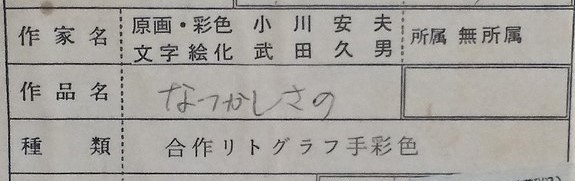 作家名 原画・彩色 小川安夫 所属 無所属
文字絵化 武田久男
作品名 なつかしさの
種類 合作リトグラフ手彩色